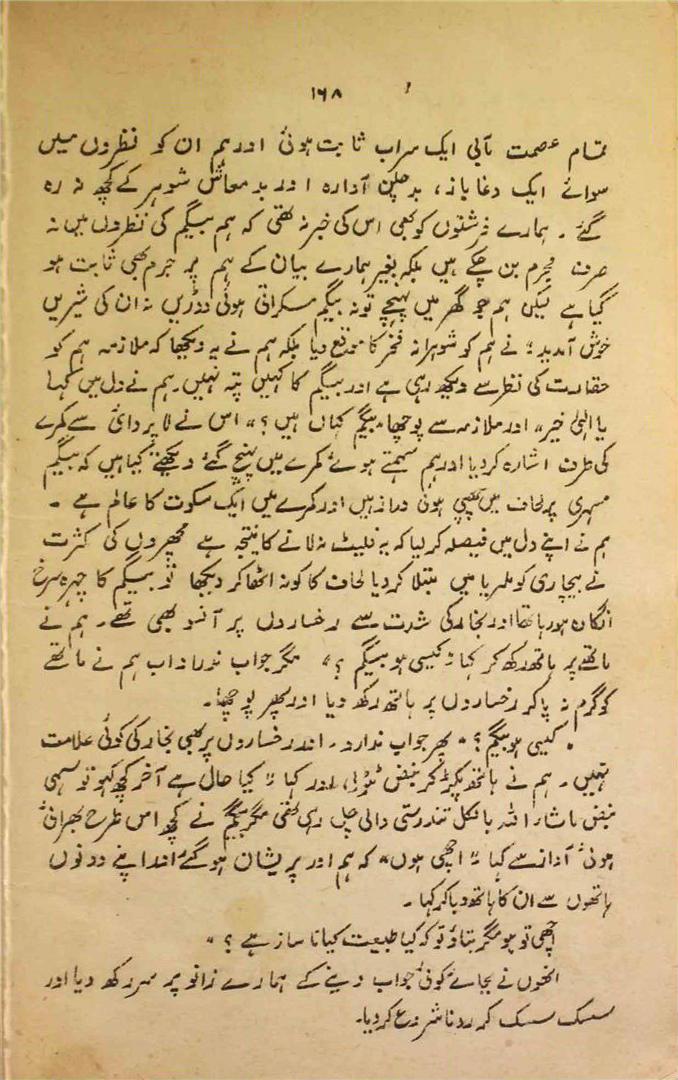 ۱۶۸
تمام عصمت مآبی ایک سراب ثابت ہوئی اور ہم ان کو نظروں میں
سوائے ایک دغا باز، بدچلن آوارہ اور بدمعاش شوہر کے کچھ نہ رہ
گئے ۔ ہمارے فرشتوں کو بھی اس کی خبر نہ تھی کہ ہم بیگم کی نظروں میں نہ
صرف مجرم بن چکے ہیں بلکہ بغیر ہمارے بیان کے ہم پر جرم بھی ثابت ہو
گیا ہے لیکن ہم جو گھر میں پہنچے تو نہ بیگم مسکراتی ہوئی دوڑیں نہ ان کی شیریں
خوش آمدید؛ نے ہم کو شوہرانہ فخر کا موقع دیا بلکہ ہم نے یہ دیکھا کہ ملازمہ ہم کو
حقارت کی نظر سے دیکھ رہی ہے اور بیگم کا کہیں پتہ نہیں۔ ہم نے دل میں کہا
یا الہیٰ خیر" اور ملازمہ سے پوچھا "بیگم کہاں ہیں ؟" اس نے لاپروائی سے کمرے
کی طرف اشارہ کر دیا اور ہم سہمتے ہوئے کمرے میں پہنچ گئے دیکھتے کیا ہیں کہ بیگم
مسہری پر لحاف میں لپٹی ہوئی دراز ہیں اور کمرے میں ایک سکوت کا عالم ہے ۔
ہم نے اپنے دل میں فیصلہ کر لیا کہ یہ فلیٹ نہ لانے کا نتیجہ ہے مچھروں کی کثرت
نے بیچاری کو ملیریا میں مبتلا کر دیا لحاف کا کونہ اٹھا کر دیکھا تو بیگم کا چہرہ سرخ
انگارہ ہو رہا تھا اور بخار کی شدت سے رخساروں پر آنسو بھی تھے۔ ہم نے
ماتھے پر ہاتھ رکھ کر کہا "کیسی ہو بیگم ؟" مگر جواب ندارد اب ہم نے ماتھے
کو گرم نہ پاکر رخساروں پر ہاتھ رکھ دیا اور پھر پوچھا۔
"کیسی ہو بیگم ؟" پھر جواب ندارد۔ اور رخساروں پر بھی بخار کی کوئی علامت
نہیں۔ ہم نے ہاتھ پکڑ کر نبض ٹٹولی اور کہا "کیا حال ہے آخر کچھ کہو تو سہی
نبض ماشاء اللہ بالکل تندرستی والی چل رہی تھی مگر بیگم نے کچھ اس طرح بھرائی
ہوئی آواز سے کہا "اچھی ہوں" کہ ہم اور پریشان ہو گئے اور اپنے دونوں
ہاتھوں سے ان کا ہاتھ دبا کر کہا۔
اچھی تو ہو مگر بتاؤ تو کہ کیا طبیعت کیا ناساز ہے ؟"
انھوں نے بجائے کوئی جواب دینے کے ہمارے زانو پر سر رکھ دیا اور
سسک سسک کر رونا شروع کر دیا۔